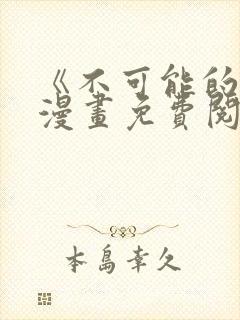 《不可能的
漫畫免費閱
本島幸久